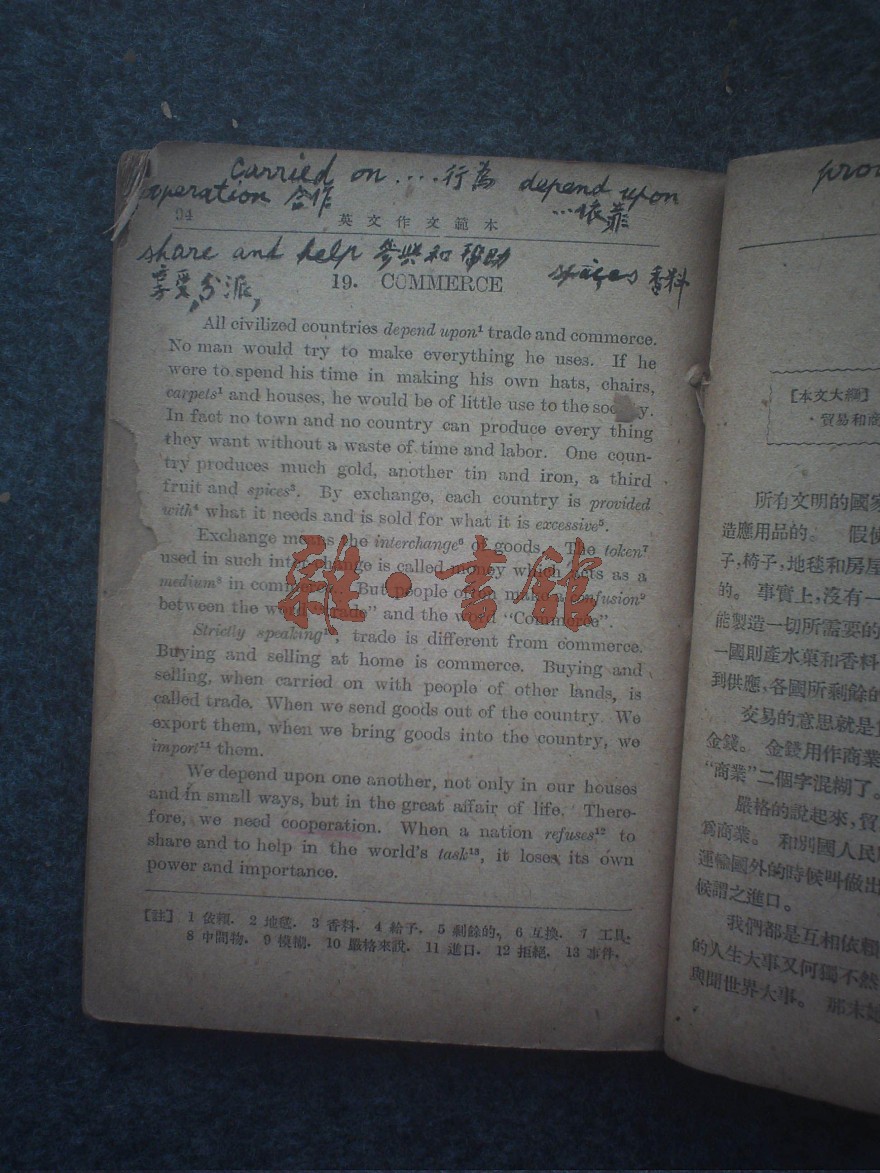 carried on ....行為 depend upon
operation 合作 ...依靠
94 英文作文範本
share and help 參與和幫助 spices 香料
享受,分派,
19. COMMERCE
All civilized countries depend upon¹ trade and commerce.
No man would try to make everything he uses. If he
were to spend his time in making his own hats, chairs,
carpets¹ and houses, he would be of little use to the soc y.
In fact no town and no country can produce every thing
they want without a waste of time and labor. One coun-
try produces much gold, another tin and iron, a third
fruit and spices³. By exchange, each country is provided
with⁴ what it needs and is sold for what it is excessive⁵.
Exchange means the interchange⁶ of goods. The token⁷
used in such interchange is called money which acts as a
medium⁸ in commerce. But people often make a confusion⁹
between the word "trade" and the word "Commerce".
Strictly speaking¹⁰, trade is different from commerce.
Buying and selling at home is commerce. Buying and
selling, when carried on with people of other lands, is
called trade. When we send goods out of the country. We
export them, when we bring goods into the country, we
import¹¹ them.
We depend upon one another, not only in our houses
and in small ways, but in the great affair of life. There-
fore, we need cooperation. When a nation refuses¹² to
share and to help in the world's task¹³, it loses its own
power and importance.
[註] 1 依賴. 2 地毯. 3 香料. 4 給予. 5 剩餘的. 6 互換. 7 工具.
8 中間物. 9 模糊. 10 嚴格來說. 11 進口. 12 拒絕. 13 事件.
雜·書館
pro
[本文大綱]
·貿易和商
所有文明的國家
造應用品的。 假使
子,椅子,地毯和房屋
的。 事實上,沒有一
能製造一切所需要的
一國則產水菓和香料
到供應,各國所剩餘的
交易的意思就是
金錢。 金錢用作商業
“商業”二個字混糊了。
嚴格的說起來,貿
爲商業。 和別國人民
運輸國外的時候叫做出
候謂之進口。
我們都是互相依賴
的人生大事又何獨不然
與聞世界大事。 那末